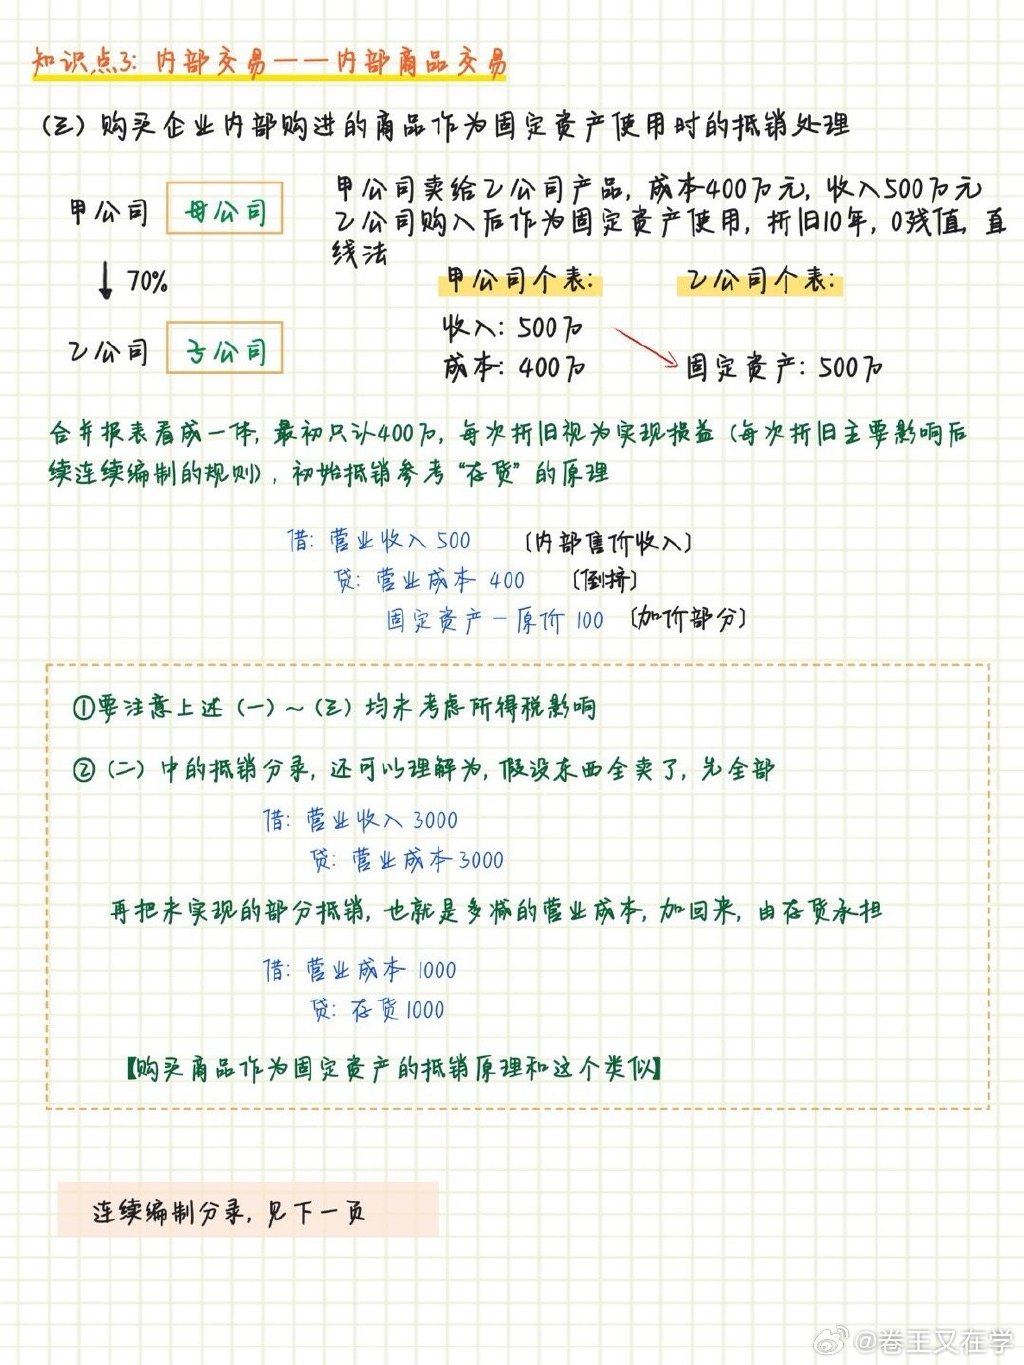 知识点3：内部交易——内部商品交易
（三）购买企业内部购进的商品作为固定资产使用时的抵销处理
甲公司 母公司
↓ 70%
乙公司 子公司
甲公司卖给乙公司产品，成本400万元，收入500万元
乙公司购入后作为固定资产使用，折旧10年，0残值，直
线法
甲公司个表：
收入：500万
成本：400万
乙公司个表：
固定资产：500万
合并报表看成一体，最初只认400万，每次折旧视为实现损益（每次折旧主要影响后
续连续编制的规则），初始抵销参考“存货”的原理
借：营业收入 500 （内部售价收入）
贷：营业成本 400 （倒挤）
固定资产－原价 100 （加价部分）
①要注意上述（一）～（三）均未考虑所得税影响
②（二）中的抵销分录，还可以理解为，假设东西全卖了，先全部
借：营业收入 3000
贷：营业成本 3000
再把未实现的部分抵销，也就是多减的营业成本，加回来，由存货承担
借：营业成本 1000
贷：存货 1000
【购买商品作为固定资产的抵销原理和这个类似】
连续编制分录，见下一页
@卷王又在学